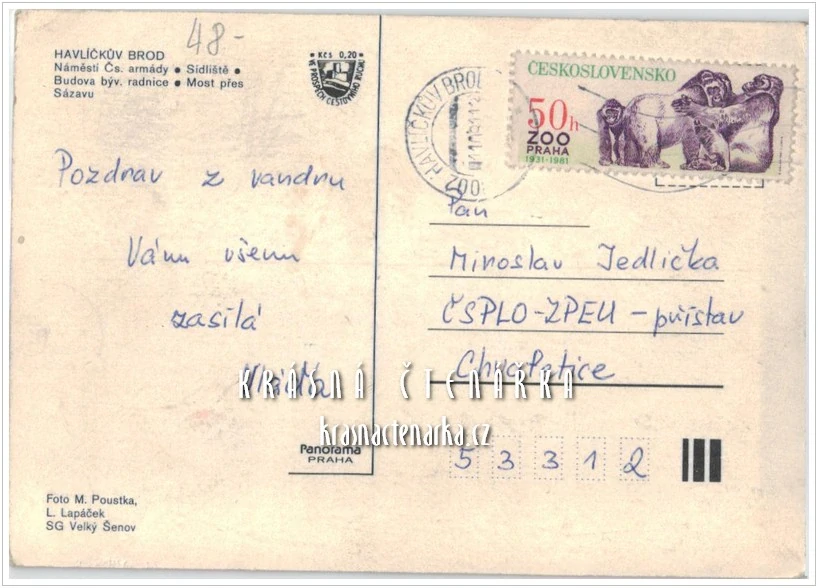 48-
HAVLÍČKŮV BROD
Náměstí Čs. armády • Sídliště •
Budova býv. radnice • Most přes
Sázavu
• Kčs 0,20 •
VE PROSPĚCH CESTOVNÍHO RUCHU
HAVLÍČKŮV BROD
ČESKOSLOVENSKO
50h
ZOO
PRAHA
1931-1981
Pozdrav z vandru
Vám všem
zasílá
Vláďa
Pan
Miroslav Jedlička
ČSPLO-ZPEU - přístav
Chvaletice
KRÁSNÁ ČTENÁŘKA
krasnactenarka.cz
Panorama
PRAHA
5 3 3 1 2
Foto M. Poustka,
L. Lapáček
SG Velký Šenov